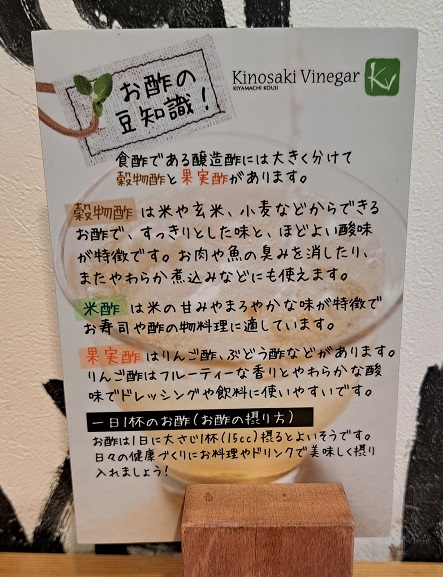 お酢の
豆知識！
Kinosaki Vinegar
KIYAMACHI KOUJI
Kv
食酢である醸造酢には大きく分けて
穀物酢と果実酢があります。
穀物酢は米や玄米、小麦などからできる
お酢で、すっきりとした味と、ほどよい酸味
が特徴です。お肉や魚の臭みを消したり、
またやわらか煮込みなどにも使えます。
米酢は米の甘みやまろやかな味が特徴で
お寿司や酢の物料理に適しています。
果実酢はりんご酢、ぶどう酢などがあります。
りんご酢はフルーティーな香りとやわらかな酸
味でドレッシングや飲料に使いやすいです。
一日1杯のお酢（お酢の摂り方）
お酢は1日に大さじ1杯（15cc）摂るとよいそうです。
日々の健康づくりにお料理やドリンクで美味しく摂り
入れましょう！